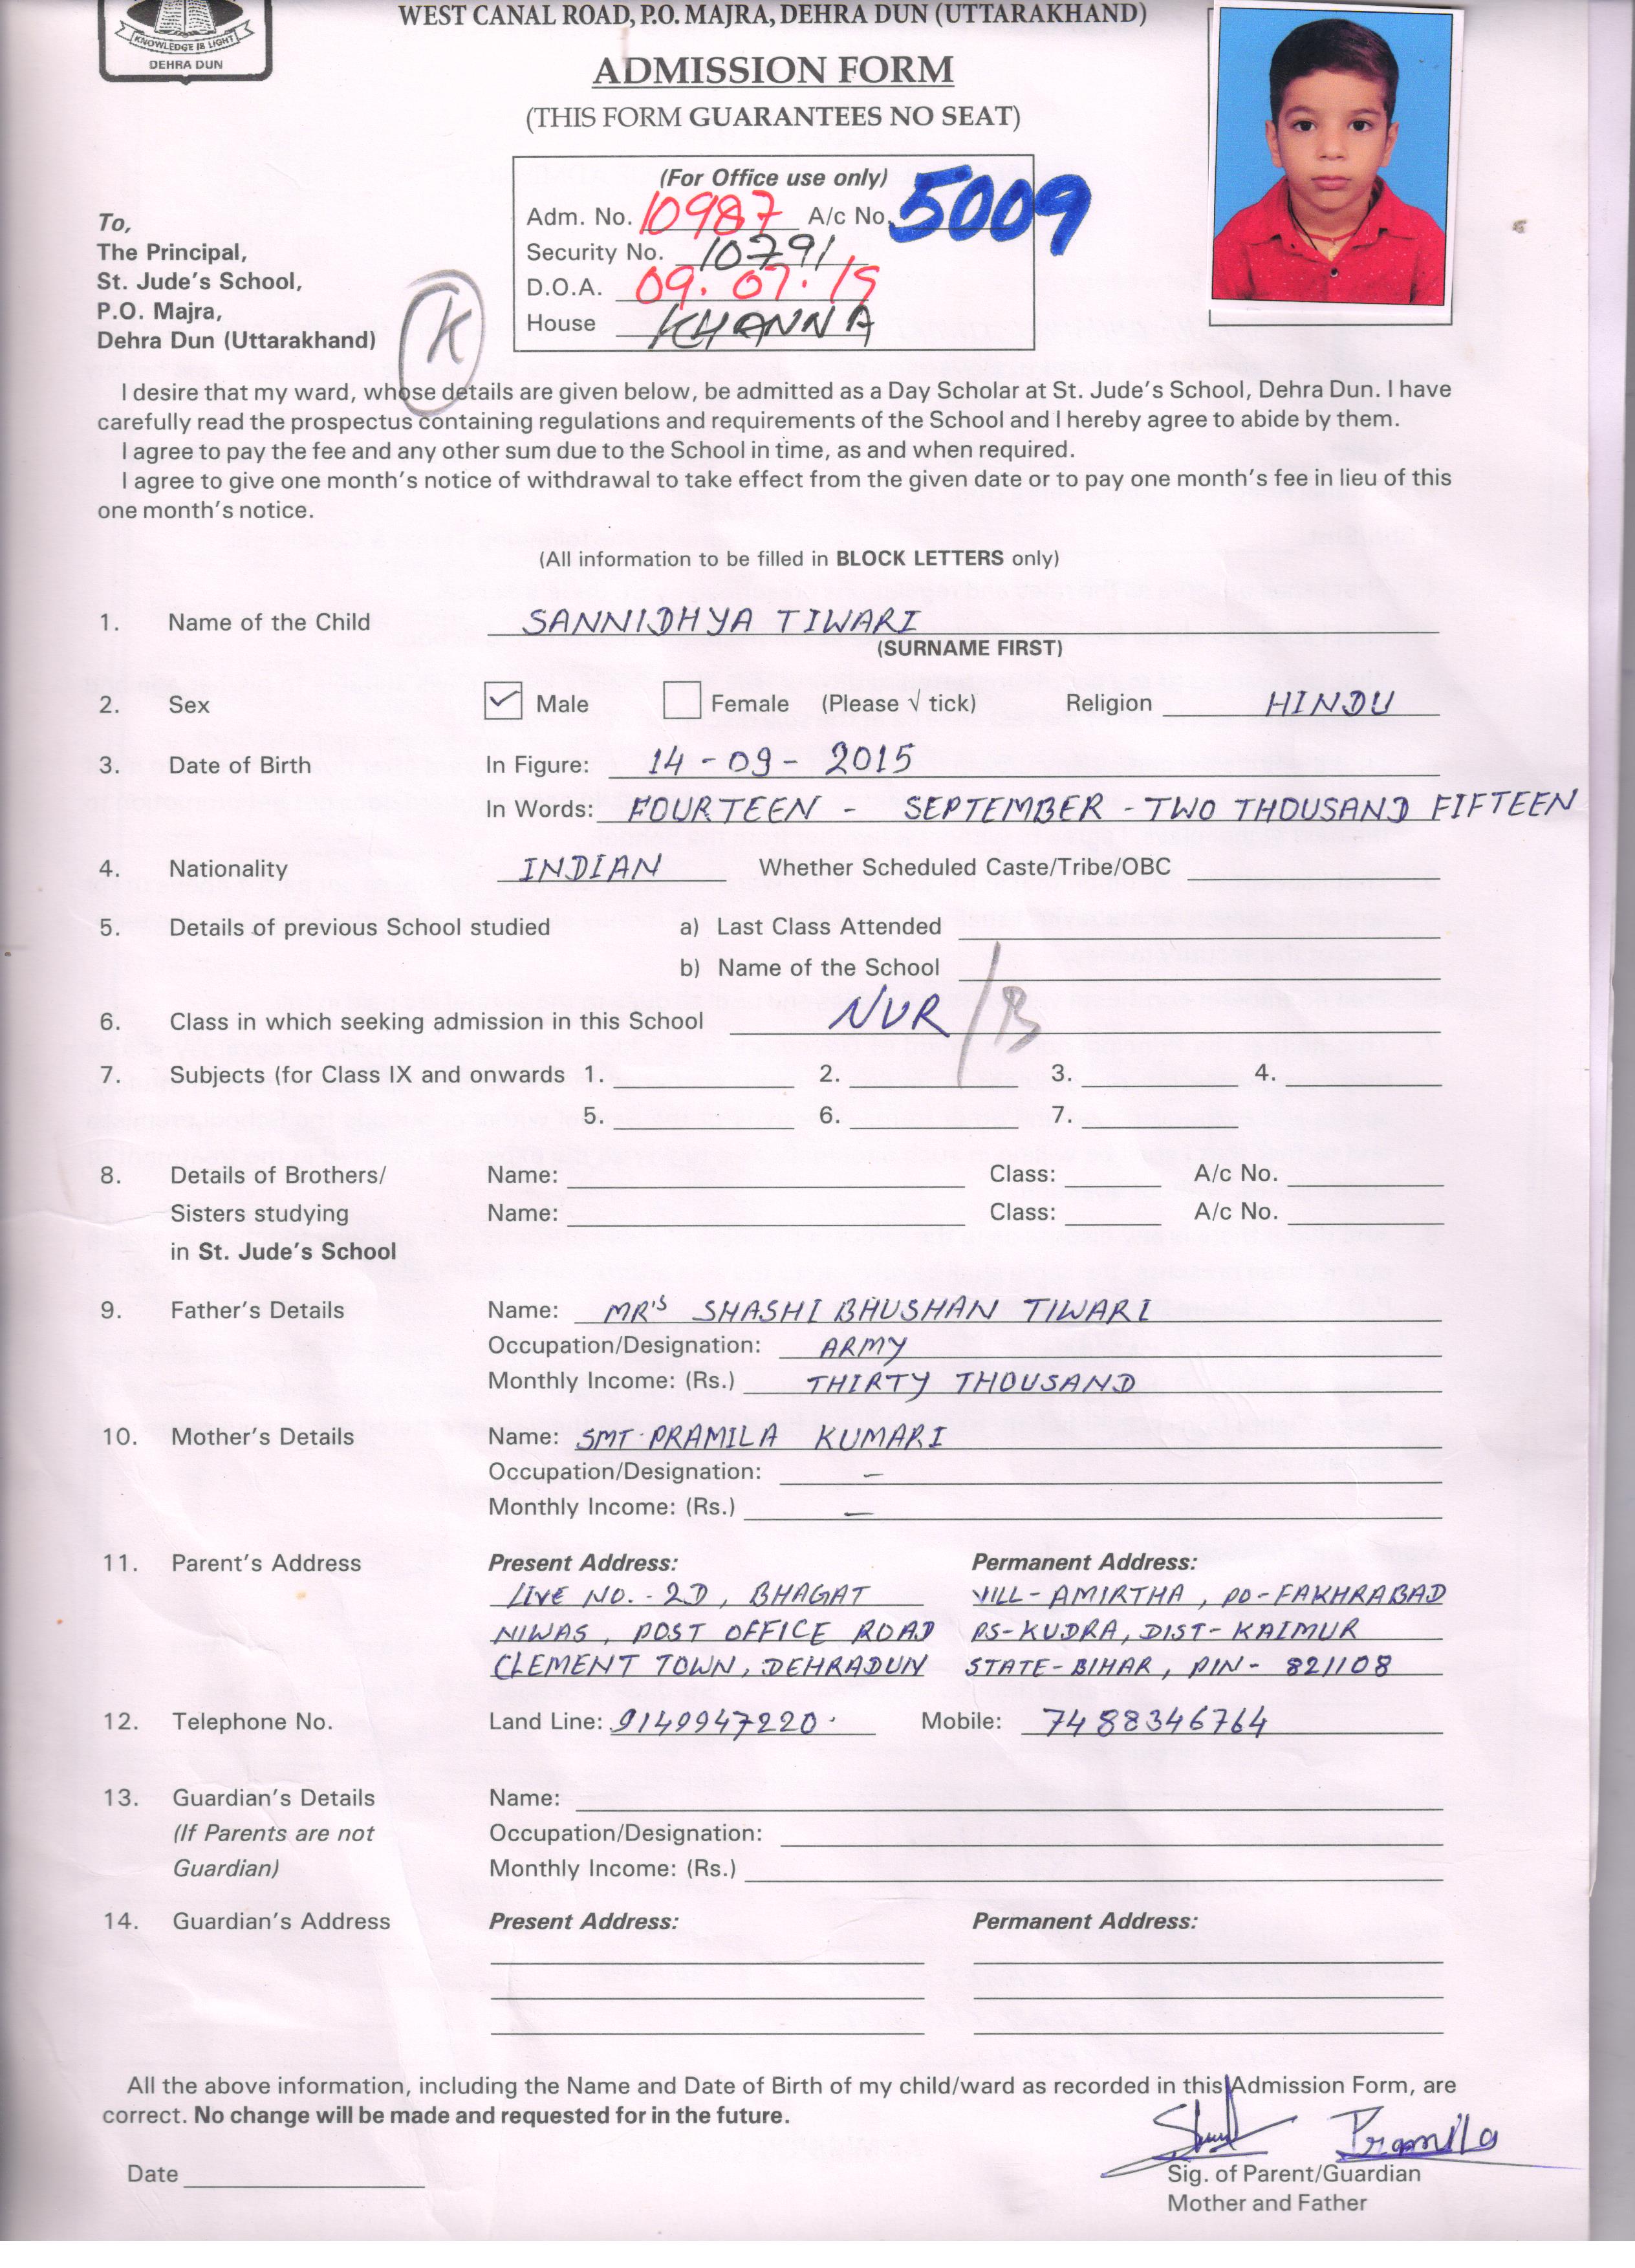 WEST CANAL ROAD, P.O. MAJRA, DEHRA DUN (UTTARAKHAND)
KNOWLEDGE IS LIGHT
DEHRA DUN
ADMISSION FORM
(THIS FORM GUARANTEES NO SEAT)
(For Office use only)
Adm. No. 10987 A/c No. 5009
Security No. 10791
D.O.A. 09.07.19
House KHANNA
To,
The Principal,
St. Jude's School,
P.O. Majra,
Dehra Dun (Uttarakhand)
K
I desire that my ward, whose details are given below, be admitted as a Day Scholar at St. Jude's School, Dehra Dun. I have
carefully read the prospectus containing regulations and requirements of the School and I hereby agree to abide by them.
I agree to pay the fee and any other sum due to the School in time, as and when required.
I agree to give one month's notice of withdrawal to take effect from the given date or to pay one month's fee in lieu of this
one month's notice.
(All information to be filled in BLOCK LETTERS only)
1. Name of the Child SANNIDHYA TIWARI
(SURNAME FIRST)
2. Sex ✓ Male Female (Please √ tick) Religion HINDU
3. Date of Birth In Figure: 14-09-2015
In Words: FOURTEEN - SEPTEMBER - TWO THOUSAND FIFTEEN
4. Nationality INDIAN Whether Scheduled Caste/Tribe/OBC
5. Details of previous School studied a) Last Class Attended
b) Name of the School
6. Class in which seeking admission in this School NUR/B
7. Subjects (for Class IX and onwards 1. 2. 3. 4.
5. 6. 7.
8. Details of Brothers/ Name: Class: A/c No.
Sisters studying Name: Class: A/c No.
in St. Jude's School
9. Father's Details Name: MR'S SHASHI BHUSHAN TIWARI
Occupation/Designation: ARMY
Monthly Income: (Rs.) THIRTY THOUSAND
10. Mother's Details Name: SMT. PRAMILA KUMARI
Occupation/Designation: -
Monthly Income: (Rs.) -
11. Parent's Address Present Address: Permanent Address:
NO.-2D, BHAGAT VILL-AMIRTHA, PO-FAKHRABAD
NIWAS, POST OFFICE ROAD PS-KUDRA, DIST-KAIMUR
CLEMENT TOWN, DEHRADUN STATE-BIHAR, PIN-821108
12. Telephone No. Land Line: 9149947220. Mobile: 7488346764
13. Guardian's Details Name:
(If Parents are not Occupation/Designation:
Guardian) Monthly Income: (Rs.)
14. Guardian's Address Present Address: Permanent Address:
All the above information, including the Name and Date of Birth of my child/ward as recorded in this Admission Form, are
correct. No change will be made and requested for in the future.
Pramila
Date Sig. of Parent/Guardian
Mother and Father